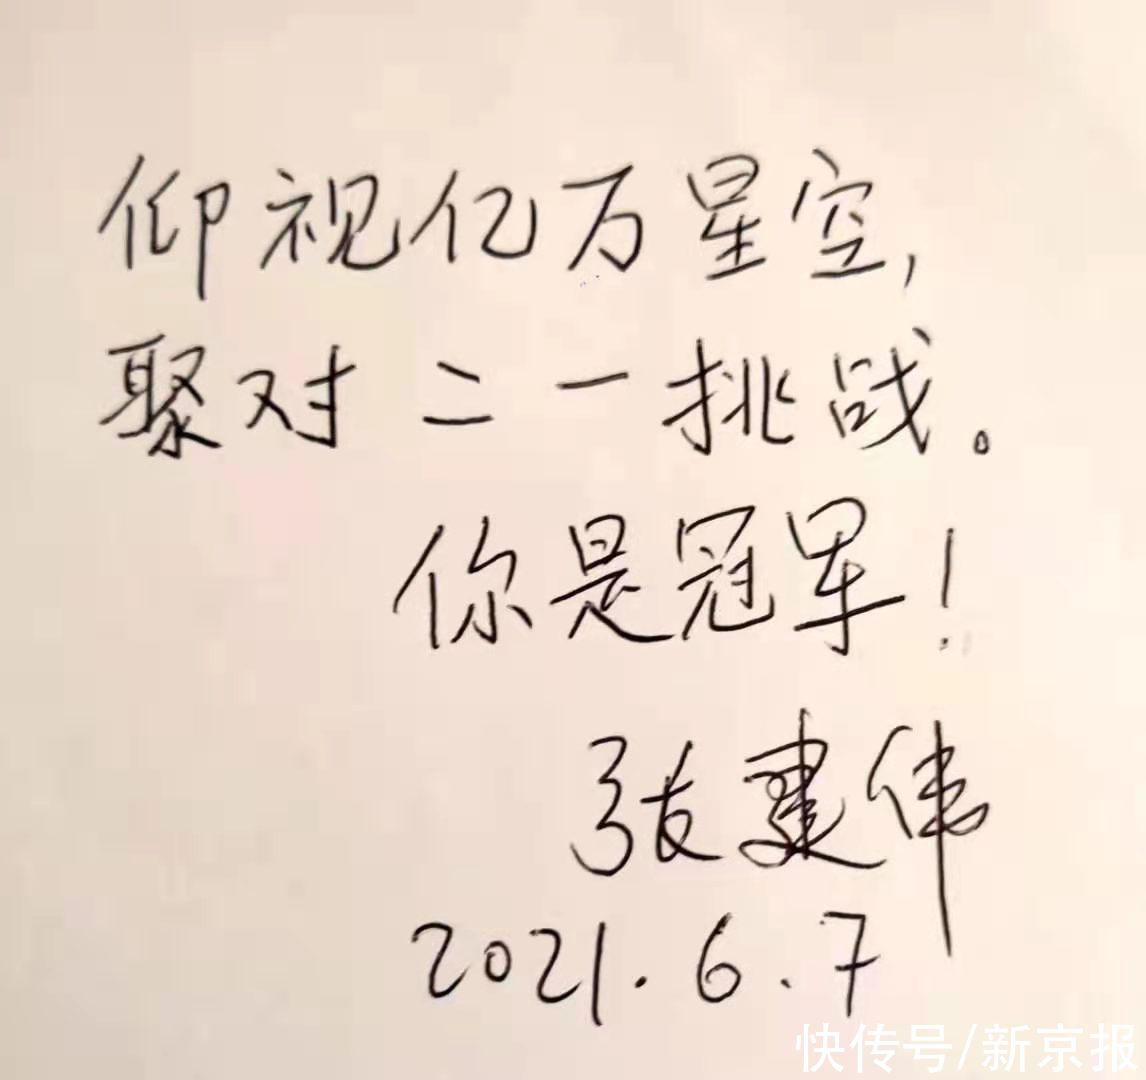 仰视亿万星空,
聚对二一挑战。
你是冠军!
张建伟
2021.6.7
快传号/新京报